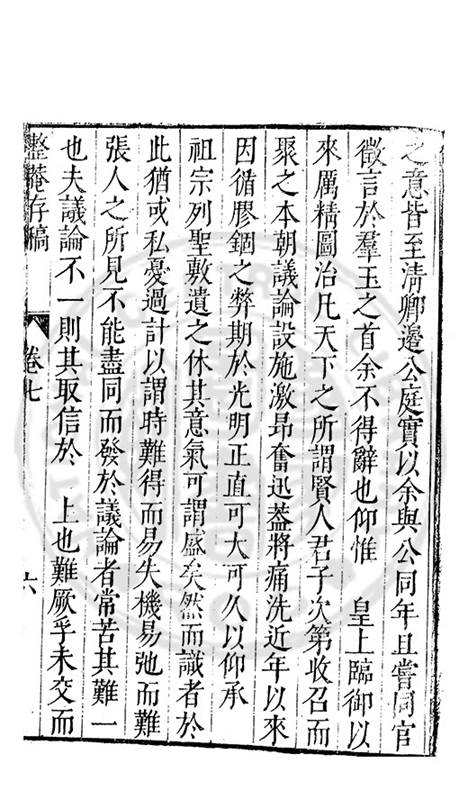 之意皆至清卿邊公庭實以余與公同年且嘗同官
徵言於羣玉之首余不得辭也仰惟 皇上臨御以
來厲精圖治凡天下之所謂賢人君子次第收召而
聚之本朝議論設施激昂奮迅葢將痛洗近年以來
因循膠錮之弊期於光明正直可大可久以仰承
祖宗列聖敷遺之休其意氣可謂盛矣然而識者於
此猶或私憂過計以謂時難得而易失機易弛而難
張人之所見不能盡同而發於議論者常苦其難一
也夫議論不一則其取信於 上也難厥孚未交而
整菴存稿 卷七 六